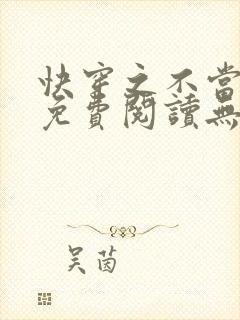 快穿之不當
免費閱讀無
吴茵